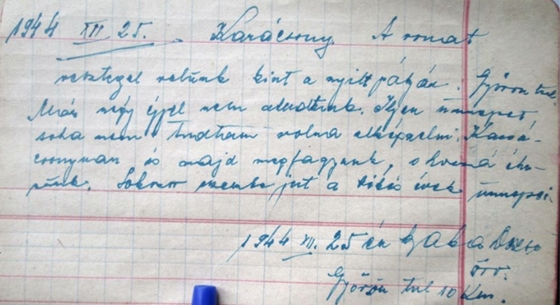 1944 XII. 25. Karácsony. A vonat
veszteget velünk kint a nyilt pályán. Győrön tul.
Már négy éjjel nem aludtunk. Ilyen ünnepet
soha nem tudtam volna elképzelni. Kará-
csonyman és majd megfagyunk, s hozzá éhe-
zünk. Sokszor eszembe jut a többi évek ünnepe.
1944 XII. 25 én Szabó Dezső
örv.
Győrön tul 10 Km.